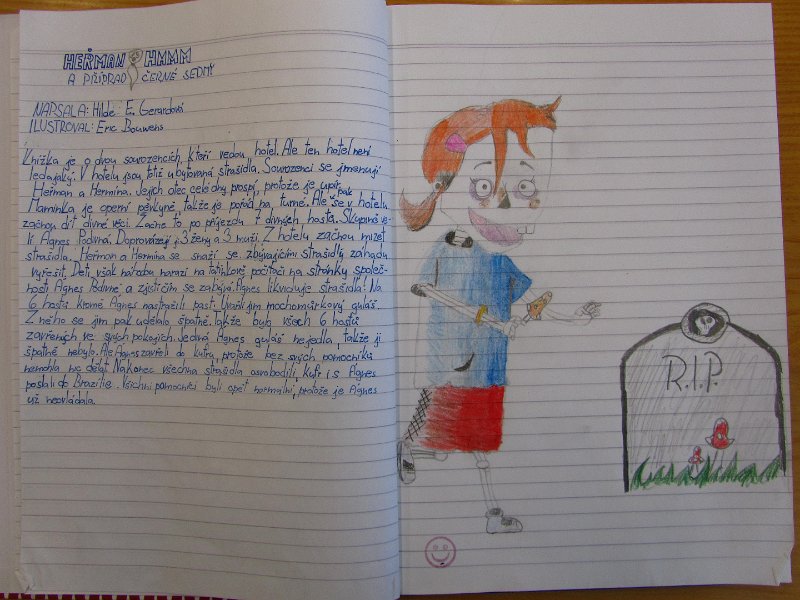 HEŘMAN HMMM
A PŘÍPAD ČERNÉ SEDMY
NAPSALA: Hilde E. Gerardová
ILUSTROVAL: Eric Bouwens
Knížka je o dvou sourozencích, kteří vedou hotel. Ale ten hotel není
ledajaký. V hotelu jsou totiž ubytovaná strašidla. Sourozenci se jmenují
Heřman a Hermína. Jejich otec celé dny prospí, protože je upír.
Maminka je operní pěvkyně, takže je pořád na turné. Ale pak se v hotelu
začnou dít divné věci. Začne to po příjezdu 7 divných hostů. Skupině ve-
lí Agnes Podivná. Doprovázejí ji 3 ženy a 3 muži. Z hotelu začnou mizet
strašidla. Heřman a Hermína se snaží se zbývajícími strašidly záhadu
vyřešit. Děti však náhodou narazí na tatínkově počítači na stránky společ-
nosti Agnes Podivné a zjistí čím se zabývá. Agnes likviduje strašidla! Na
6 hostů kromě Agnes nastražili past. Uvařili jim mochomůrkový guláš.
Z něho se jim pak udělalo špatně. Takže bylo všech 6 hostů
zavřených ve svých pokojích. Jediná Agnes guláš nejedla, takže jí
špatně nebylo. Ale Agnes zavřeli do kufru, protože bez svých pomocníků
nemohla nic dělat. Nakonec všechna strašidla osvobodili, kufr i s Agnes
poslali do Brazílie. Všichni pomocníci byli opět normální, protože je Agnes
už neovládala.
R.I.P.